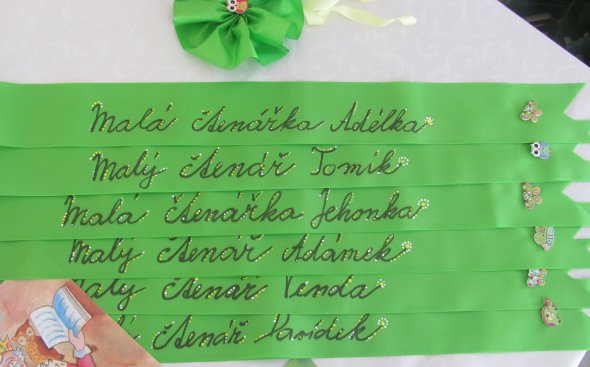 Malá čtenářka Adélka
Malý čtenář Tomík
Malá čtenářka Jehonka
Malý čtenář Adámek
Malý čtenář Venda
čtenář